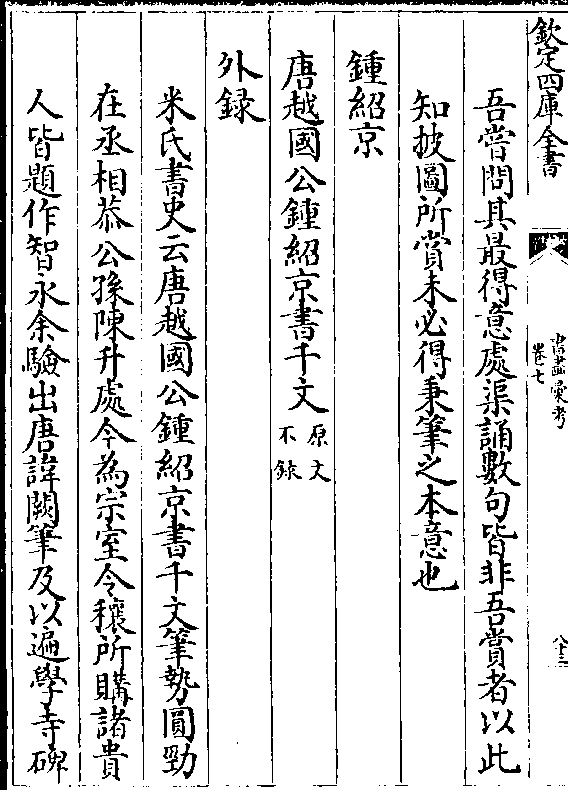 欽定四庫全書
書畫彙考
卷七
八十三
吾嘗問其最得意處渠誦數句皆非吾賞者以此
知披圖所賞未必得秉筆之本意也
鍾紹京
唐越國公鍾紹京書千文原文不錄
外録
米氏書史云唐越國公鍾紹京書千文筆勢圓勁
在丞相恭公孫陳升處今為宗室令穰所購諸貴
人皆題作智永余驗出唐諱闕筆及以遍學寺碑